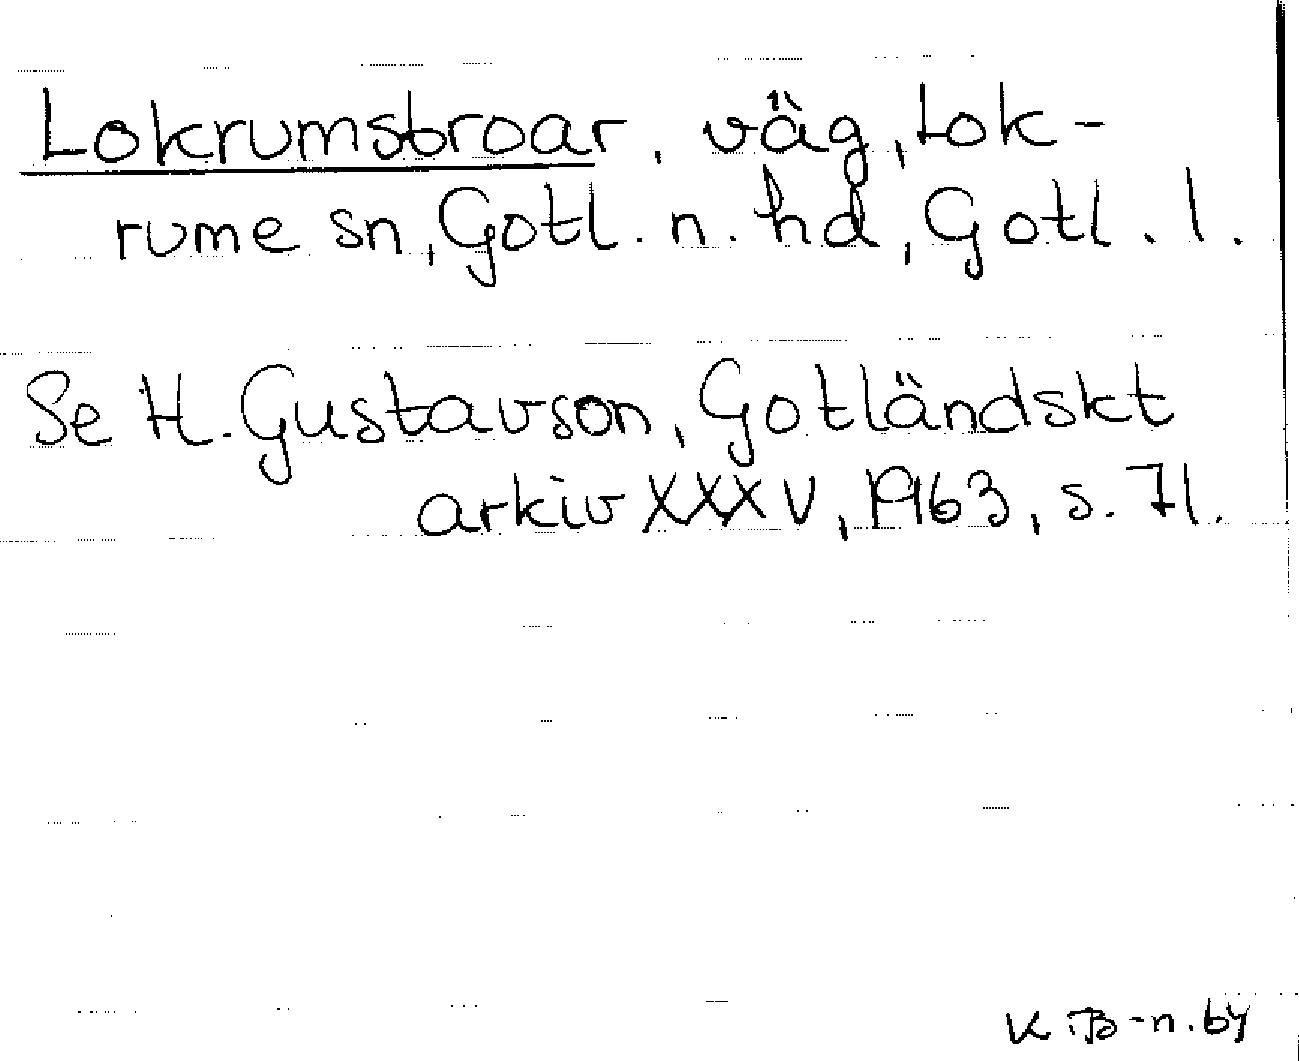 Lokrumsbroar, väg, Lok-
rume sn, Gotl. n. hd, Gotl. l.
Se H. Gustavson, Gotländskt
arkiv XXXV, 1963, s. 71.
K. B-n. by